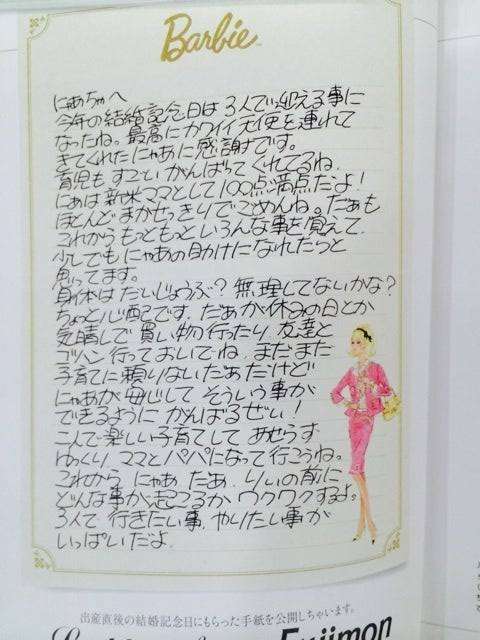 Barbie
にゃあちゃへ
今年の結婚記念日は3人でい迎える事に
なったね。最高にカワイイ天使を連れて
きてくれたにゃあに感謝です。
育児もすごいがんばってくれてるね.
にゃあは新米ママとして100点満点だよ!
ほとんどまかせっきりでごめんね。だあも
これからもっともっといろんな事を覚えて,
少しでもにゃあの助けになれたらっと
思ってます。
身体はだいじょうぶ?無理してないかな?
ちょっと心配です。だあが休みの日とか
気晴しで買い物行ったり,友達と
ゴハン行っておいでね.まだまだ
子育てに頼りないだあだけど
にゃあが安心して そういう事が
できるように がんばるぜい!
二人で楽しい子育てして あせらず
ゆっくり ママとパパになって行こうね。
これから にゃあ だあ.りぃの前に
どんな事が起こるか,ワクワクするよ。
3人で 行きたい事,やりたい事が
いっぱいだよ.
出産直後の結婚記念日にもらった手紙を公開しちゃいます。
Fujimon